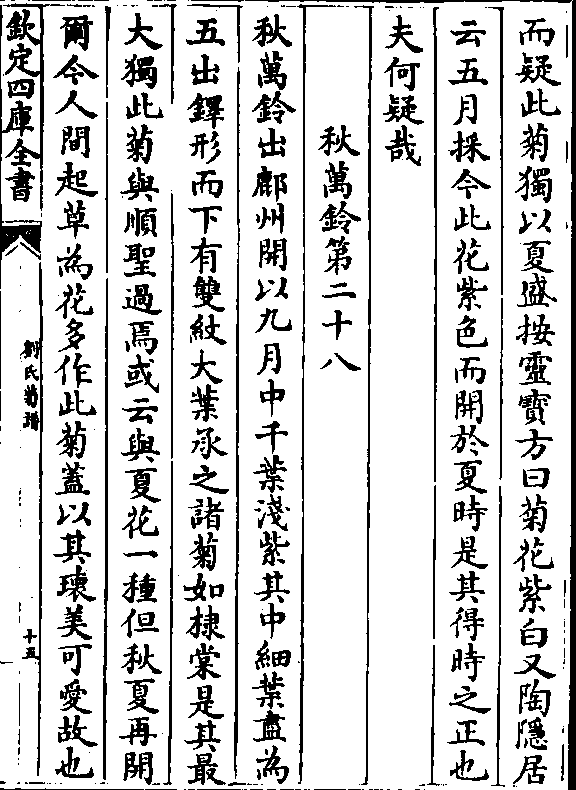 而疑此菊獨以夏盛按靈寶方曰菊花紫白又陶隱居
云五月採今此花紫色而開於夏時是其得時之正也
夫何疑哉
秋萬鈴第二十八
秋萬鈴出鄜州開以九月中千葉淺紫其中細葉盡為
五出鐸形而下有雙紋大葉承之諸菊如棣棠是其最
大獨此菊與順聖過焉或云與夏花一種但秋夏再開
爾今人間起草為花多作此菊蓋以其瓌美可愛故也
欽定四庫全書
劉氏菊譜
十五